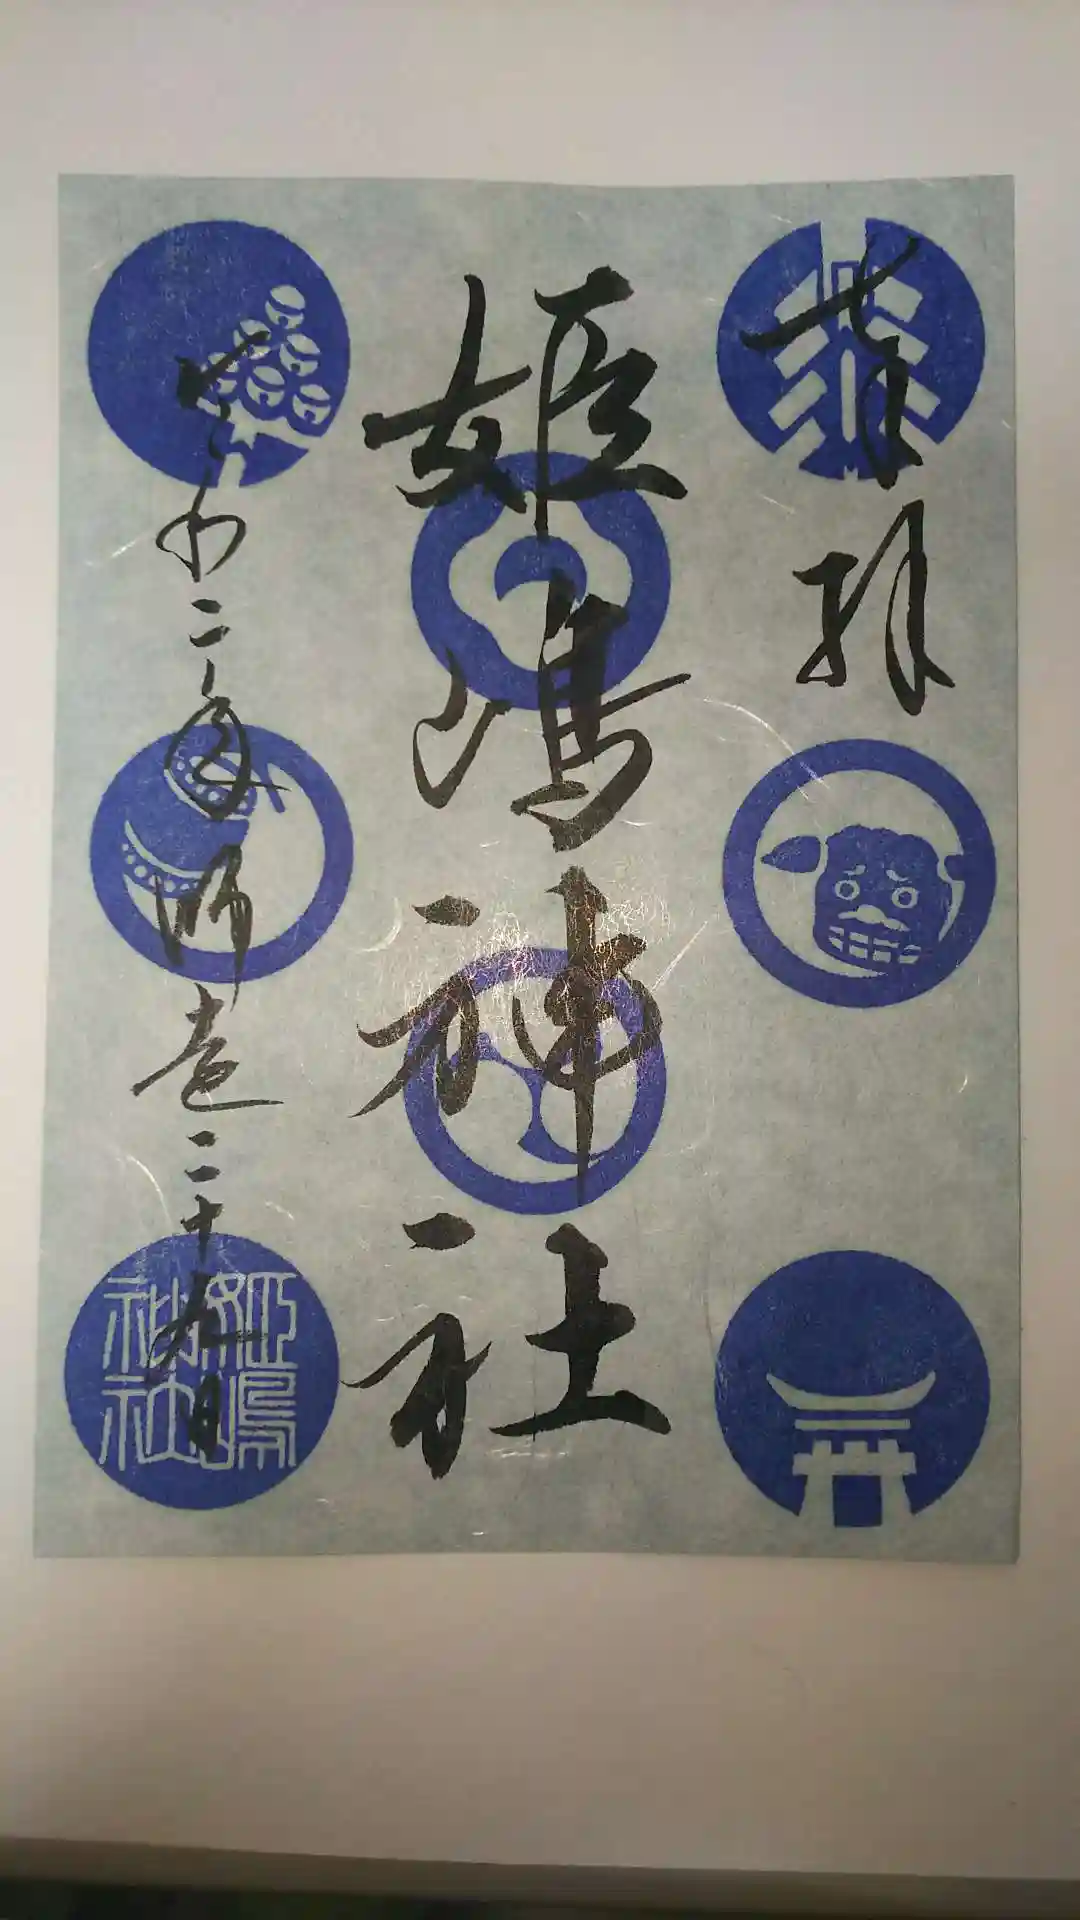 奉拝
姫嶋神社
令和二年師走二十九日
姫嶋
神社